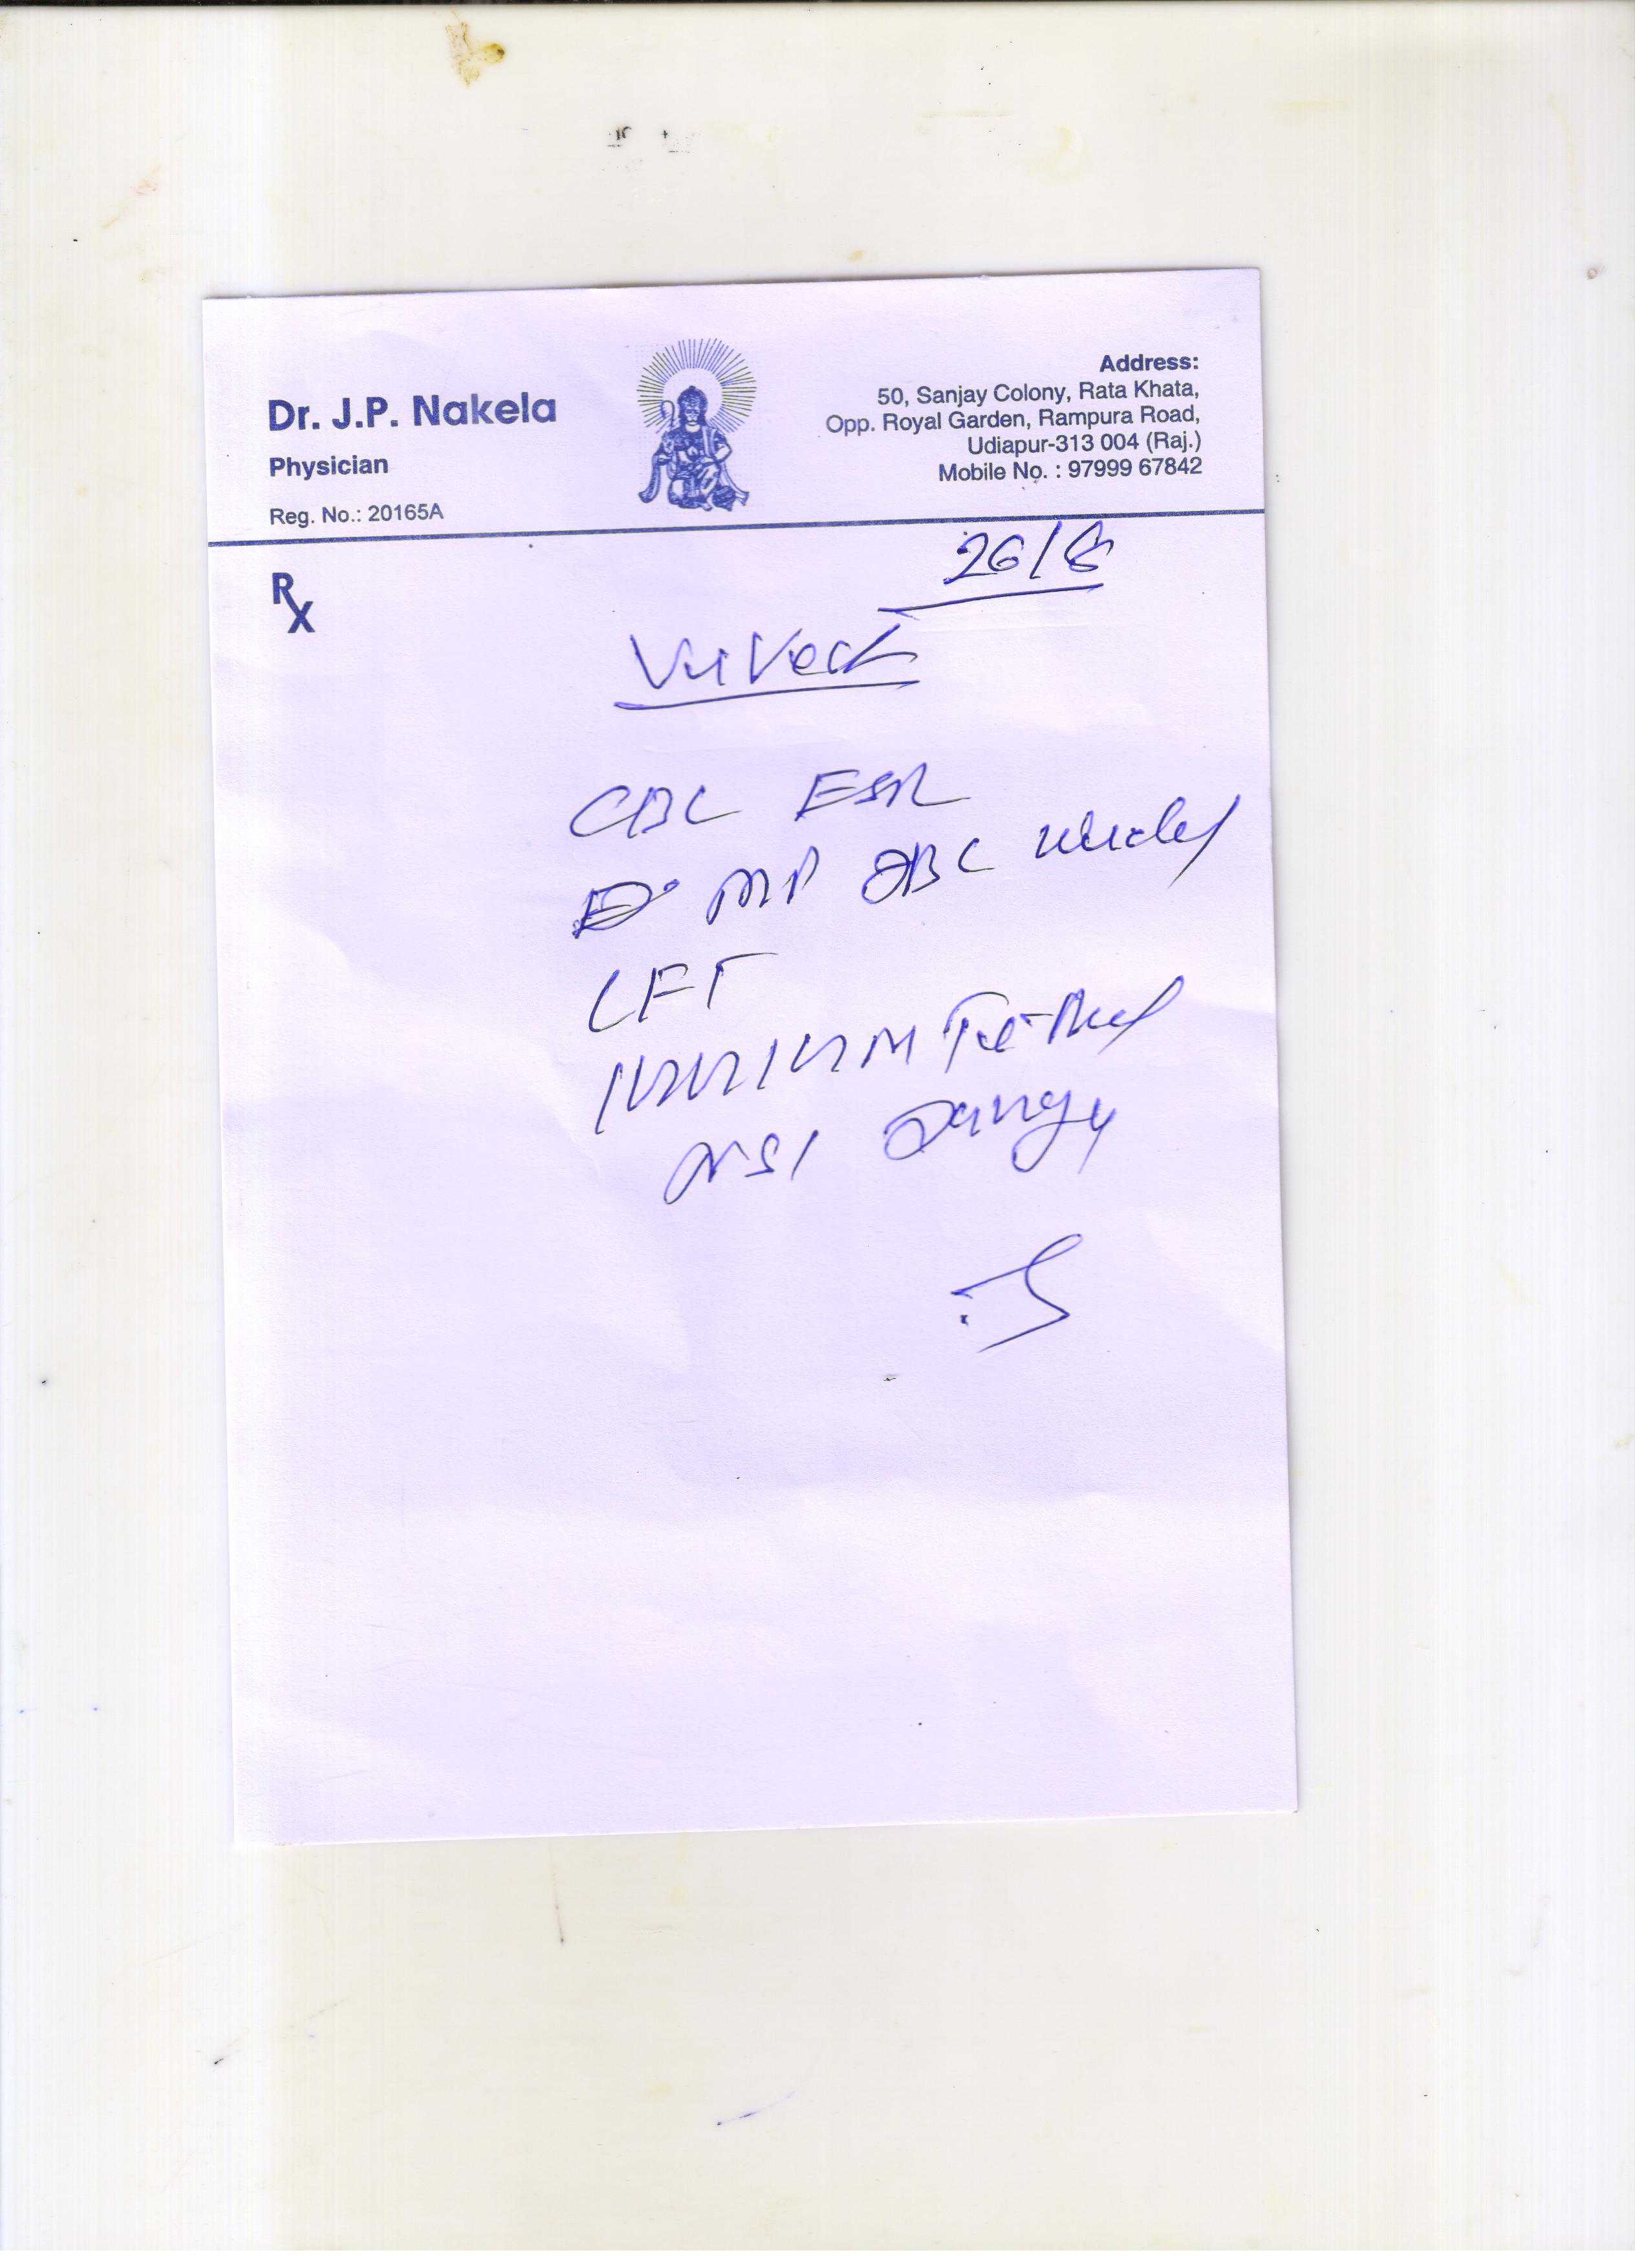 Dr. J.P. Nakela
Physician
Reg. No.: 20165A
Address:
50, Sanjay Colony, Rata Khata,
Opp. Royal Garden, Rampura Road,
Udiapur-313 004 (Raj.)
Mobile No. : 97999 67842
26/8
Rx
CBC ESR
MP
LFT
NS1 Dengy